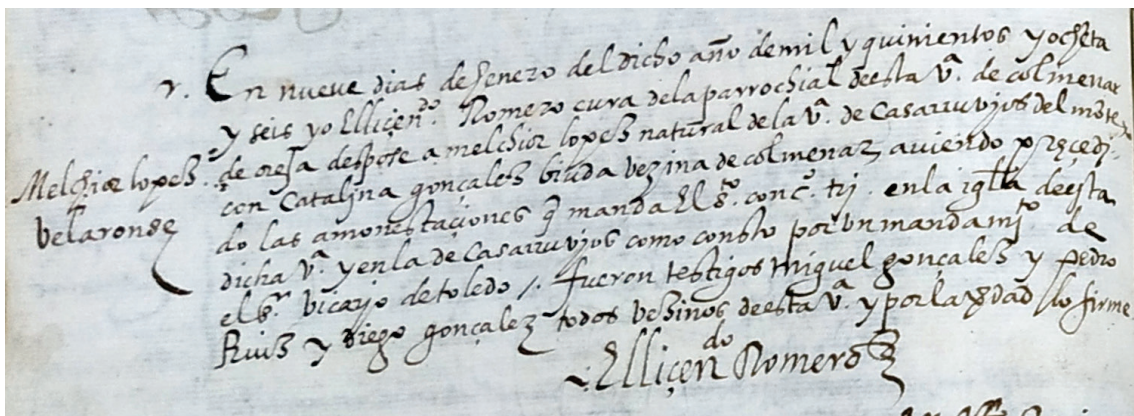 En nueve dias de henero del dicho año de mil y quinientos y ochēta
y seis yo El liçen.do Romero cura dela parrochial deesta v.a de colmenar
Melchior lopez
de oreja despose a melchior lopez natural dela v.a de Casarruvios del mōte
con Catalina gonçalez biuda vezina de colmenar aviendo preçedi
Velaronse
do las amonestaçiones q̄ manda El s.to conc.o tri. en la igl̄ia deesta
dicha v.a y en la de Casarruvios como consto por un mandami.to de
el s.r vicario de toledo /. fueron testigos miguel gonçalez y pedro
Ruiz y diego gonçalez todos vezinos deesta v.a y por la v̄dad lo firme
El liçen.do Romero